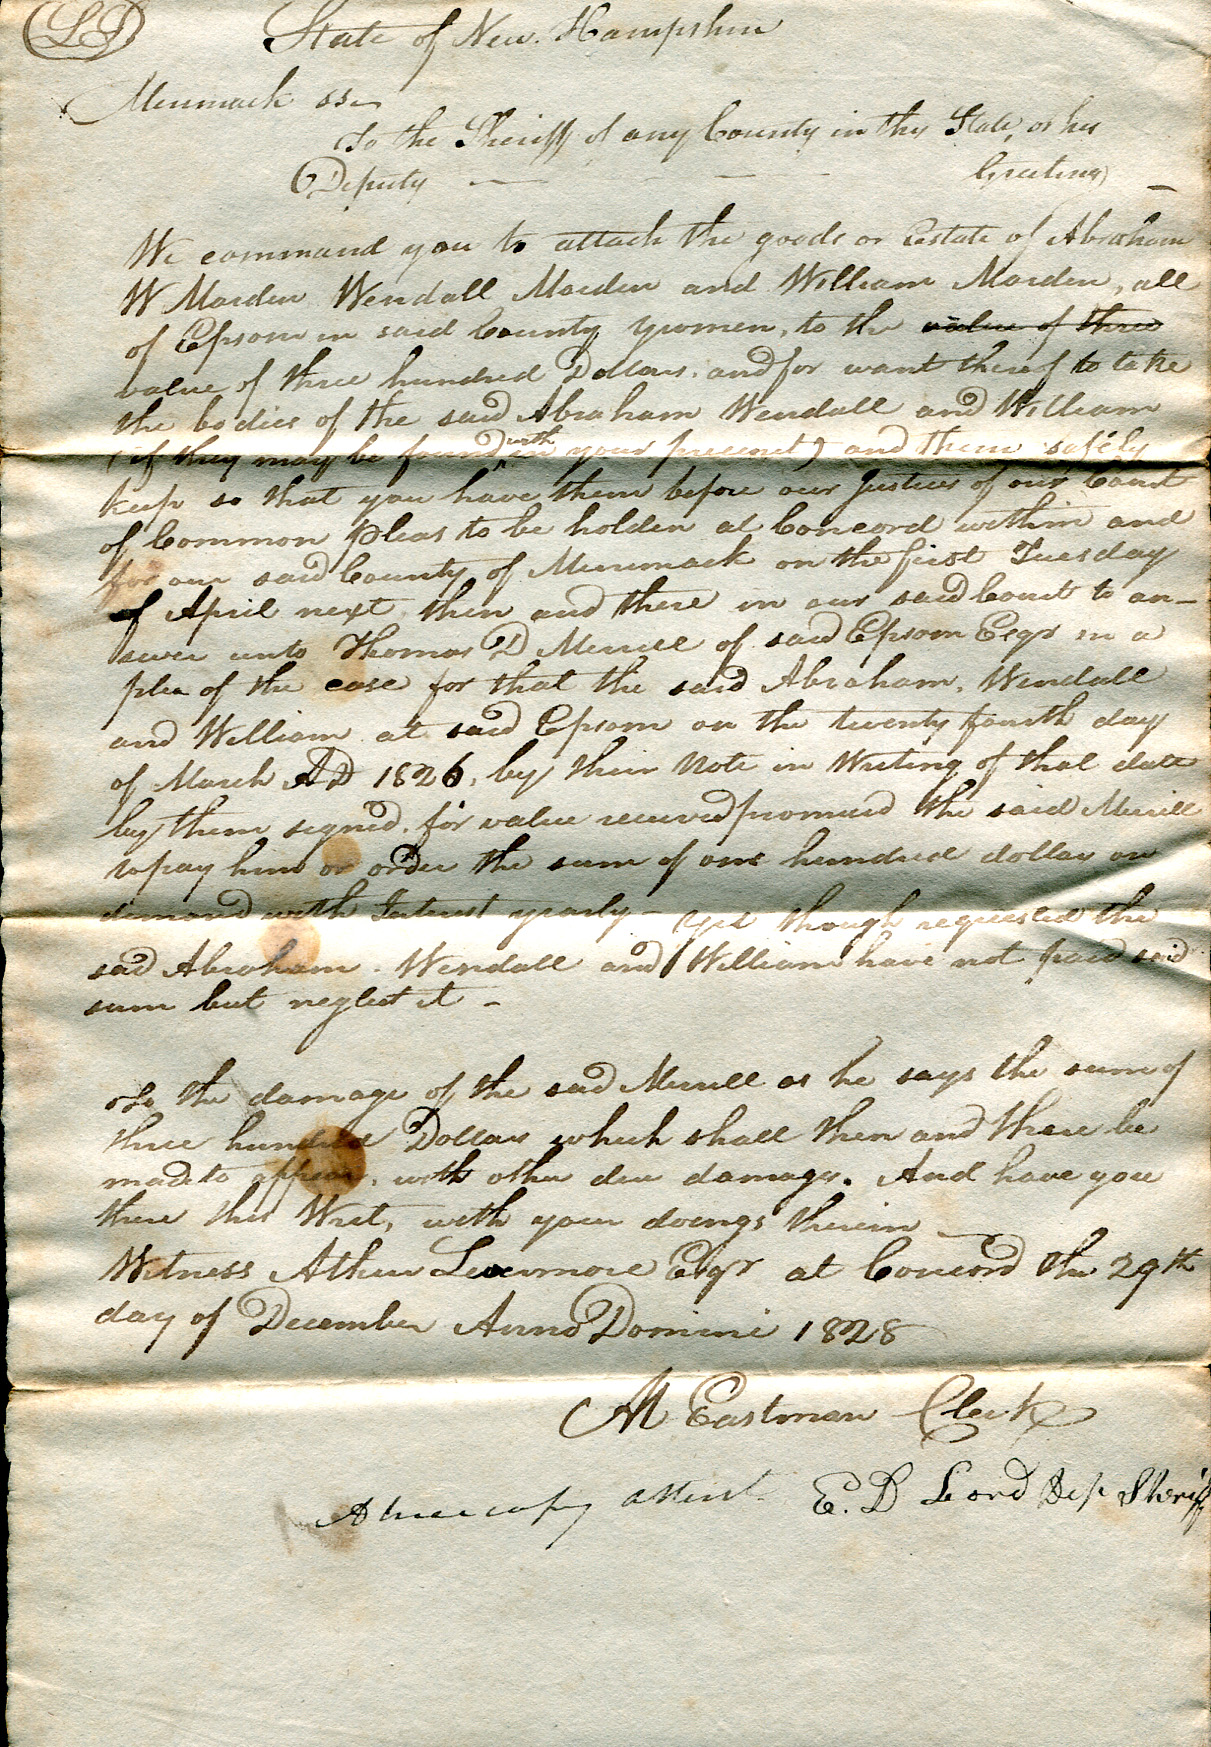 LS
State of New. Hampshire
Merrimack ss.
To the Sheriff of any County in this State, or his
Deputy — — — Greeting —
We command you to attach the goods or Estate of Abraham
W Marden Wendall Marden and William Marden, all
of Epsom in said County Yeomen, to the value of three
value of three hundred Dollars, and for want thereof to take
the bodies of the said Abraham Wendall and William
(if they may be found with in your precinct) and them safely
keep so that you have them before our Justices of our Court
of Common Pleas to be holden at Concord within and
for our said County of Merrimack on the first Tuesday
of April next then and there in our said Court to an-
swer unto Thomas D Merrill of said Epsom Esqr in a
plea of the case for that the said Abraham, Wendall
and William at said Epsom on the twenty fourth day
of March AD 1826, by their Note in Writing of that date
by them signed for value received promised the said Merrill
to pay him or order the sum of one hundred dollars on
demand with Interest yearly – Yet though requested the
said Abraham. Wendall and William have not paid said
sum but neglect it –
To the damage of the said Merrill as he says the sum of
three hundred Dollars which shall then and there be
made to appear, with other due damages. And have you
there this Writ, with your doings therein
Witness Arthur Livermore Esqr at Concord the 29th
day of December Anno Domini 1828
M Eastman Clerk
A true copy attest E. D Lord Dep Sheriff